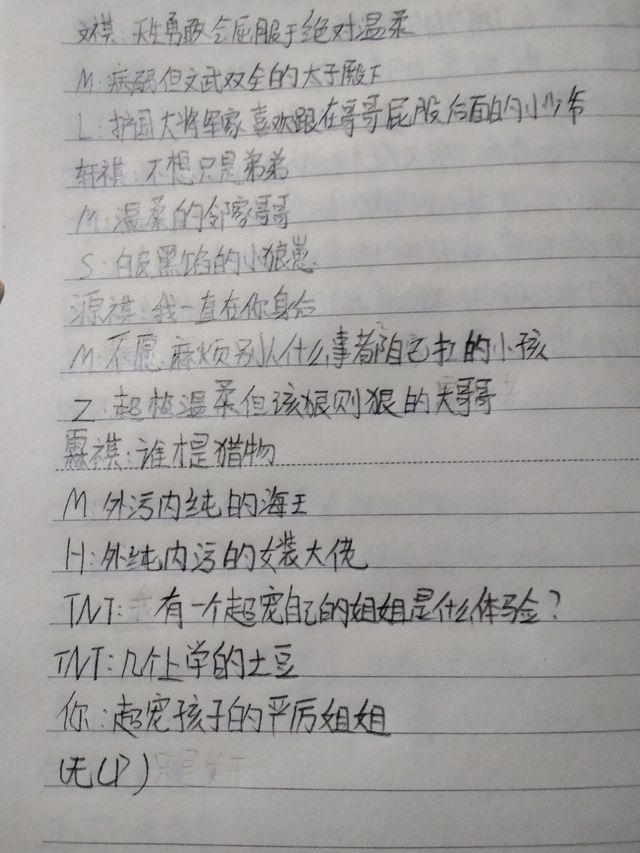 文祺:天生勇敢会屈服于绝对温柔
M:病弱但文武双全的太子殿下
L:护国大将军家喜欢跟在哥哥屁股后面的小少爷
轩祺:不想只是弟弟
M:温柔的邻家哥哥
S:白皮黑馅的小狼崽
源祺:我一直在你身后
M:不愿麻烦别人什么事都自己扛的小孩
Z:超极温柔但该狠则狠的大哥哥
霖祺:谁才是猎物
M:外污内纯的海王
H:外纯内污的女装大佬
TNT:有一个超宠自己的姐姐是什么体验?
TNT:几个上学的土豆
你:超宠孩子的严厉姐姐
(无CP)